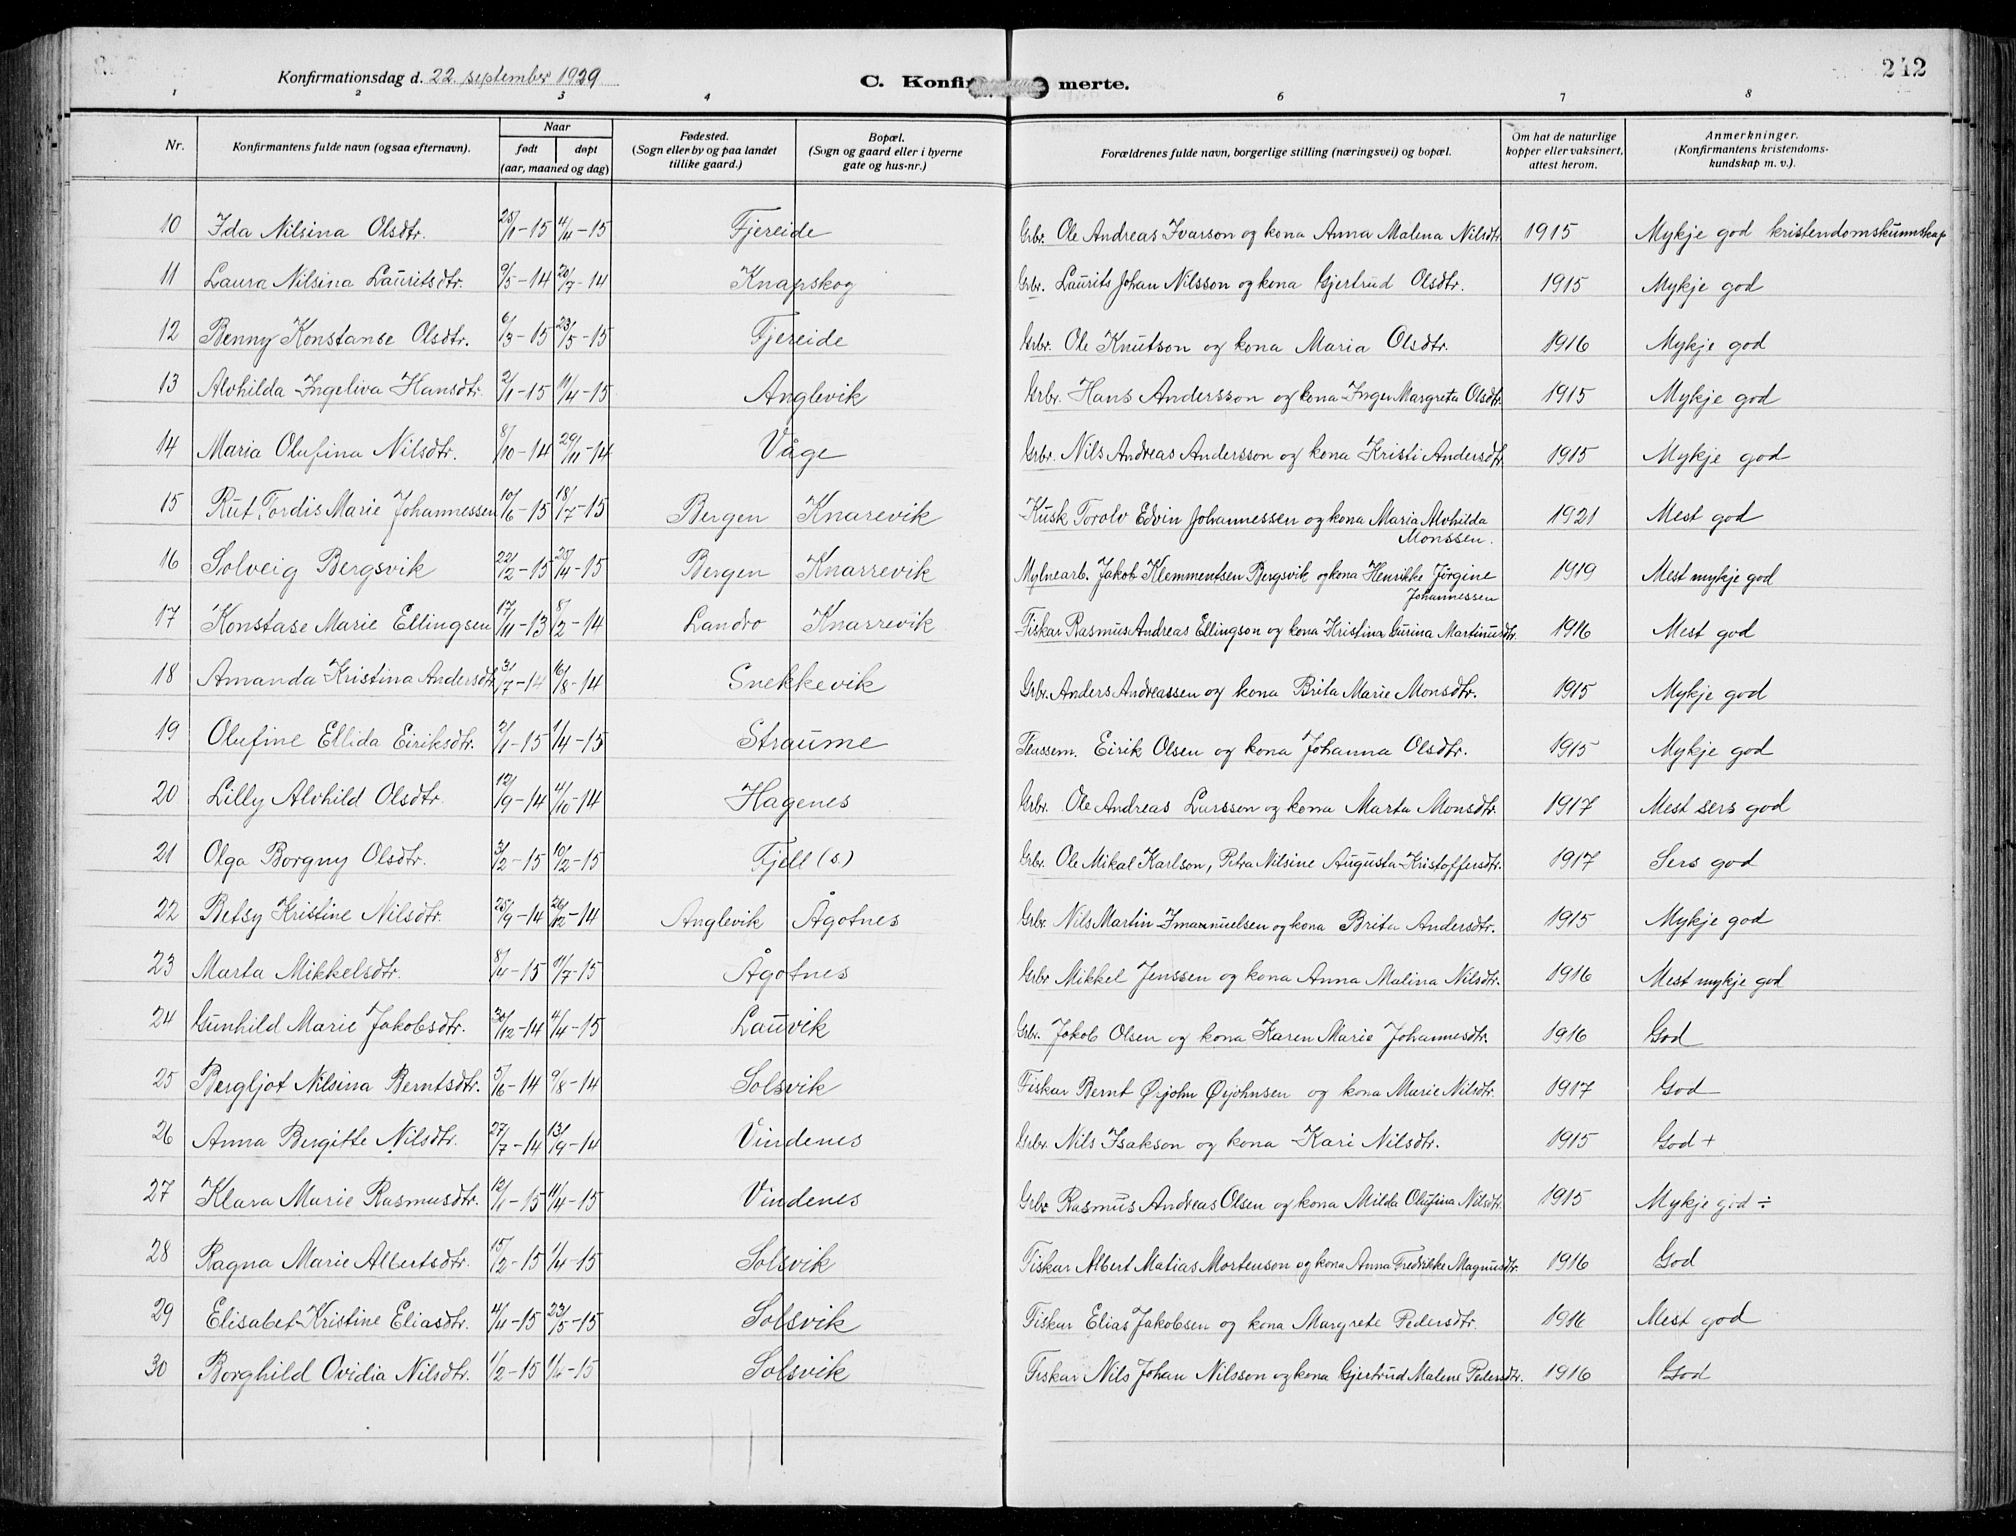 242
Konfirmationsdag d. 22. september 1929
C. Konfir merte.
1 2 3 4 6 7 8
Nr. Konfirmantens fulde navn (ogsaa efternavn). Naar født døpt (aar, maaned og dag) Fødested. (Sogn eller by og paa landet tillike gaard.) Bopæl. (Sogn og gaard eller i byerne gate og hus-nr.) Forældrenes fulde navn, borgerlige stilling (næringsvei) og bopæl. Om hat de naturlige kopper eller vaksinert, attest herom. Anmerkninger. (Konfirmantens kristendomskundskap m. v.).
10 Ida Nilsina Olsdtr. 25/1-15 4/4-15 Fjereide Grbr. Ole Andreas Ivarson og kona Anna Malena Nilsdtr 1915 Mykje god kristendomskunnskap
11 Laura Nilsina Lauritsdtr. 9/5-14 20/7-14 Knapskog Grbr. Laurits Johan Nilsson og kona Gjertrud Olsdtr. 1915 Mykje god
12 Benny Konstanse Olsdtr. 6/3-15 23/5-15 Fjereide Grbr. Ole Knutson og kona Maria Olsdtr. 1916 Mykje god
13 Alvhilda Ingeliva Hansdtr. 2/1-15 11/4-15 Anglevik Grbr. Hans Andersson og kona Inger Margreta Olsdtr. 1915 Mykje god
14 Maria Olufina Nilsdtr. 8/10-14 29/11-14 Våge Grbr. Nils Andreas Andersson og kona Kristi Andersdtr. 1915 Mykje god
15 Rut Tordis Marie Johannessen 10/6-15 18/7-15 Bergen Knarevik Kusk Torolv Edvin Johannessen og kona Maria Alvhilda Monssen. 1921 Mest god
16 Solveig Bergsvik 22/2-15 25/4-15 Bergen Knarrevik Mylnearb. Jakob Klemmentsen Bergsvik og kona Henrikke Jørgine Johannessen 1919 Mest mykje god
17 Konstase Marie Ellingsen 17/11-13 8/2-14 Landro Knarrevik Fiskar Rasmus Andreas Ellingson og kona Kristina Gurina Martinusdtr. 1916 Mest god
18 Amanda Kristina Andersdtr. 3/7-14 16/8-14 Snekkevik Grbr. Anders Andreassen og kona Brita Marie Monsdtr. 1915 Mykje god
19 Olufine Ellida Eiriksdtr. 2/1-15 1/4-15 Straume Eirik Olsen og kona Johanna Olsdtr. 1915 Mykje god
20 Lilly Alvhild Olsdtr. 12/9-14 4/10-14 Hagenes Grbr. Ole Andreas Larsson og kona Marta Monsdtr. 1917 Mest sers god
21 Olga Borgny Olsdtr. 3/2-15 10/2-15 Fjell (s) Grbr. Ole Mikal Karlson, Petra Nilsine Augusta Kristoffersdtr. 1917 Sers god
22 Betsy Kristine Nilsdtr. 25/9-14 26/12-14 Anglevik Ågotnes Grbr. Nils Martin Imanuelsen og kona Brita Andersdtr. 1915 Mykje god
23 Marta Mikkelsdtr. 8/4-15 11/7-15 Ågotnes Grbr Mikkel Jenssen og kona Anna Malina Nilsdtr. 1916 Mest mykje god
24 Gunhild Marie Jakobsdtr. 30/12-14 4/4-15 Lauvik Grbr. Jakob Olsen og kona Karen Marie Johannesdtr. 1916 God
25 Bergljot Nilsina Berntsdtr. 5/6-14 9/8-14 Solsvik Fiskar Bernt Ørjohn Ørjohnsen og kona Marie Nilsdtr. 1917 God
26 Anna Bergitte Nilsdtr. 27/7-14 13/9-14 Vindenes Grbr. Nils Isakson og kona Kari Nilsdtr. 1915 God +
27 Klara Marie Rasmusdtr. 12/1-15 11/4-15 Vindenes Grbr Rasmus Andreas Olsen og kona Milda Olufina Nilsdtr. 1915 Mykje god ÷
28 Ragna Marie Albertsdtr. 15/2-15 1/4-15 Solsvik Fiskar Albert Matias Mortenson og kona Anna Fredrikke Magnusdtr. 1916 God
29 Elisabet Kristine Eliasdtr. 4/4-15 23/5-15 Solsvik Fiskar Elias Jakobsen og kona Margrete Pedersdtr. 1916 Mest god
30 Borghild Ovidia Nilsdtr. 1/2-15 1/4-15 Solsvik Fiskar Nils Johan Nilsson og kona Gjertrud Malene Pedersdtr. 1916 God